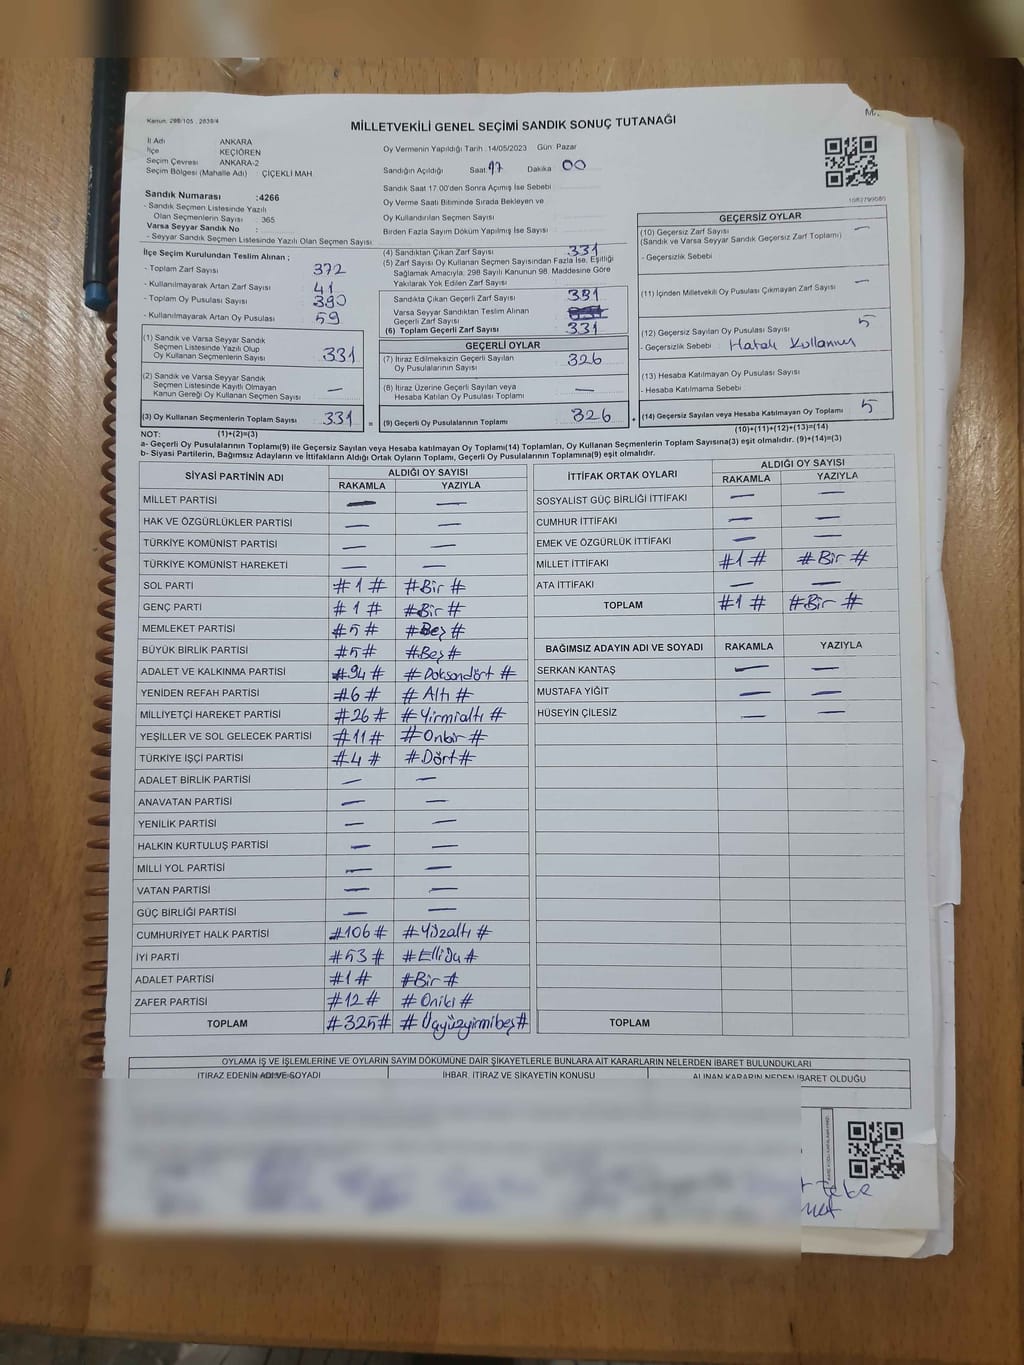 Kanun: 298/105 , 2839/4
MİLLETVEKİLİ GENEL SEÇİMİ SANDIK SONUÇ TUTANAĞI
İl Adı ANKARA
İlçe KEÇİÖREN
Seçim Çevresi ANKARA-2
Seçim Bölgesi (Mahalle Adı) : ÇİÇEKLİ MAH.
Oy Vermenin Yapıldığı Tarih :14/05/2023 Gün: Pazar
Sandığın Açıldığı Saat: 17 Dakika 00
Sandık Saat 17.00'den Sonra Açılmış İse Sebebi :
Oy Verme Saati Bitiminde Sırada Bekleyen ve
Oy Kullandırılan Seçmen Sayısı :
Birden Fazla Sayım Döküm Yapılmış İse Sayısı :
Sandık Numarası :4266
- Sandık Seçmen Listesinde Yazılı
Olan Seçmenlerin Sayısı : 365
Varsa Seyyar Sandık No :
- Seyyar Sandık Seçmen Listesinde Yazılı Olan Seçmen Sayısı:
İlçe Seçim Kurulundan Teslim Alınan ;
- Toplam Zarf Sayısı 372
- Kullanılmayarak Artan Zarf Sayısı 41
- Toplam Oy Pusulası Sayısı 390
- Kullanılmayarak Artan Oy Pusulası 59
(1) Sandık ve Varsa Seyyar Sandık
Seçmen Listesinde Yazılı Olup
Oy Kullanan Seçmenlerin Sayısı 331
(2) Sandık ve Varsa Seyyar Sandık
Seçmen Listesinde Kayıtlı Olmayan
Kanun Gereği Oy Kullanan Seçmen Sayısı —
(3) Oy Kullanan Seçmenlerin Toplam Sayısı 331 =
(1)+(2)=(3)
(4) Sandıktan Çıkan Zarf Sayısı 331
(5) Zarf Sayısı Oy Kullanan Seçmen Sayısından Fazla İse, Eşitliği
Sağlamak Amacıyla, 298 Sayılı Kanunun 98. Maddesine Göre
Yakılarak Yok Edilen Zarf Sayısı
Sandıkta Çıkan Geçerli Zarf Sayısı 331
Varsa Seyyar Sandıktan Teslim Alınan
Geçerli Zarf Sayısı
(6) Toplam Geçerli Zarf Sayısı 331
GEÇERLİ OYLAR
(7) İtiraz Edilmeksizin Geçerli Sayılan
Oy Pusulalarının Sayısı 326
(8) İtiraz Üzerine Geçerli Sayılan veya
Hesaba Katılan Oy Pusulası Toplamı —
(9) Geçerli Oy Pusulalarının Toplamı 326 +
1082799080
GEÇERSİZ OYLAR
(10) Geçersiz Zarf Sayısı —
(Sandık ve Varsa Seyyar Sandık Geçersiz Zarf Toplamı)
- Geçersizlik Sebebi :
(11) İçinden Milletvekili Oy Pusulası Çıkmayan Zarf Sayısı —
(12) Geçersiz Sayılan Oy Pusulası Sayısı 5
- Geçersizlik Sebebi : Hatalı Kullanım
(13) Hesaba Katılmayan Oy Pusulası Sayısı
- Hesaba Katılmama Sebebi :
(14) Geçersiz Sayılan veya Hesaba Katılmayan Oy Toplamı 5
(10)+(11)+(12)+(13)=(14)
NOT:
a- Geçerli Oy Pusulalarının Toplamı(9) ile Geçersiz Sayılan veya Hesaba katılmayan Oy Toplamı(14) Toplamları, Oy Kullanan Seçmenlerin Toplam Sayısına(3) eşit olmalıdır. (9)+(14)=(3)
b- Siyasi Partilerin, Bağımsız Adayların ve İttifakların Aldığı Ortak Oyların Toplamı, Geçerli Oy Pusulalarının Toplamına(9) eşit olmalıdır.
SİYASİ PARTİNİN ADI ALDIĞI OY SAYISI
RAKAMLA YAZIYLA
MİLLET PARTİSİ — —
HAK VE ÖZGÜRLÜKLER PARTİSİ — —
TÜRKİYE KOMÜNİST PARTİSİ — —
TÜRKİYE KOMÜNİST HAREKETİ — —
SOL PARTİ #1# #Bir#
GENÇ PARTİ #1# #Bir#
MEMLEKET PARTİSİ #5# #Beş#
BÜYÜK BİRLİK PARTİSİ #5# #Beş#
ADALET VE KALKINMA PARTİSİ #94# #Doksandört#
YENİDEN REFAH PARTİSİ #6# #Altı#
MİLLİYETÇİ HAREKET PARTİSİ #26# #Yirmialtı#
YEŞİLLER VE SOL GELECEK PARTİSİ #11# #Onbir#
TÜRKİYE İŞÇİ PARTİSİ #4# #Dört#
ADALET BİRLİK PARTİSİ — —
ANAVATAN PARTİSİ — —
YENİLİK PARTİSİ — —
HALKIN KURTULUŞ PARTİSİ — —
MİLLİ YOL PARTİSİ — —
VATAN PARTİSİ — —
GÜÇ BİRLİĞİ PARTİSİ — —
CUMHURİYET HALK PARTİSİ #106# #Yüzaltı#
İYİ PARTİ #53#
ADALET PARTİSİ #1# #Bir#
ZAFER PARTİSİ #12# #Oniki#
TOPLAM #325# #Üçyüzyirmibeş#
İTTİFAK ORTAK OYLARI ALDIĞI OY SAYISI
RAKAMLA YAZIYLA
SOSYALİST GÜÇ BİRLİĞİ İTTİFAKI — —
CUMHUR İTTİFAKI — —
EMEK VE ÖZGÜRLÜK İTTİFAKI — —
MİLLET İTTİFAKI #1# #Bir#
ATA İTTİFAKI — —
TOPLAM #1# #Bir#
BAĞIMSIZ ADAYIN ADI VE SOYADI RAKAMLA YAZIYLA
SERKAN KANTAŞ — —
MUSTAFA YİĞİT — —
HÜSEYİN ÇİLESİZ — —
TOPLAM
OYLAMA İŞ VE İŞLEMLERİNE VE OYLARIN SAYIM DÖKÜMÜNE DAİR ŞİKAYETLERLE BUNLARA AİT KARARLARIN NELERDEN İBARET BULUNDUKLARI
İTİRAZ EDENİN ADI VE SOYADI İHBAR, İTİRAZ VE ŞİKAYETİN KONUSU ALINAN KARARIN NEDEN İBARET OLDUĞU